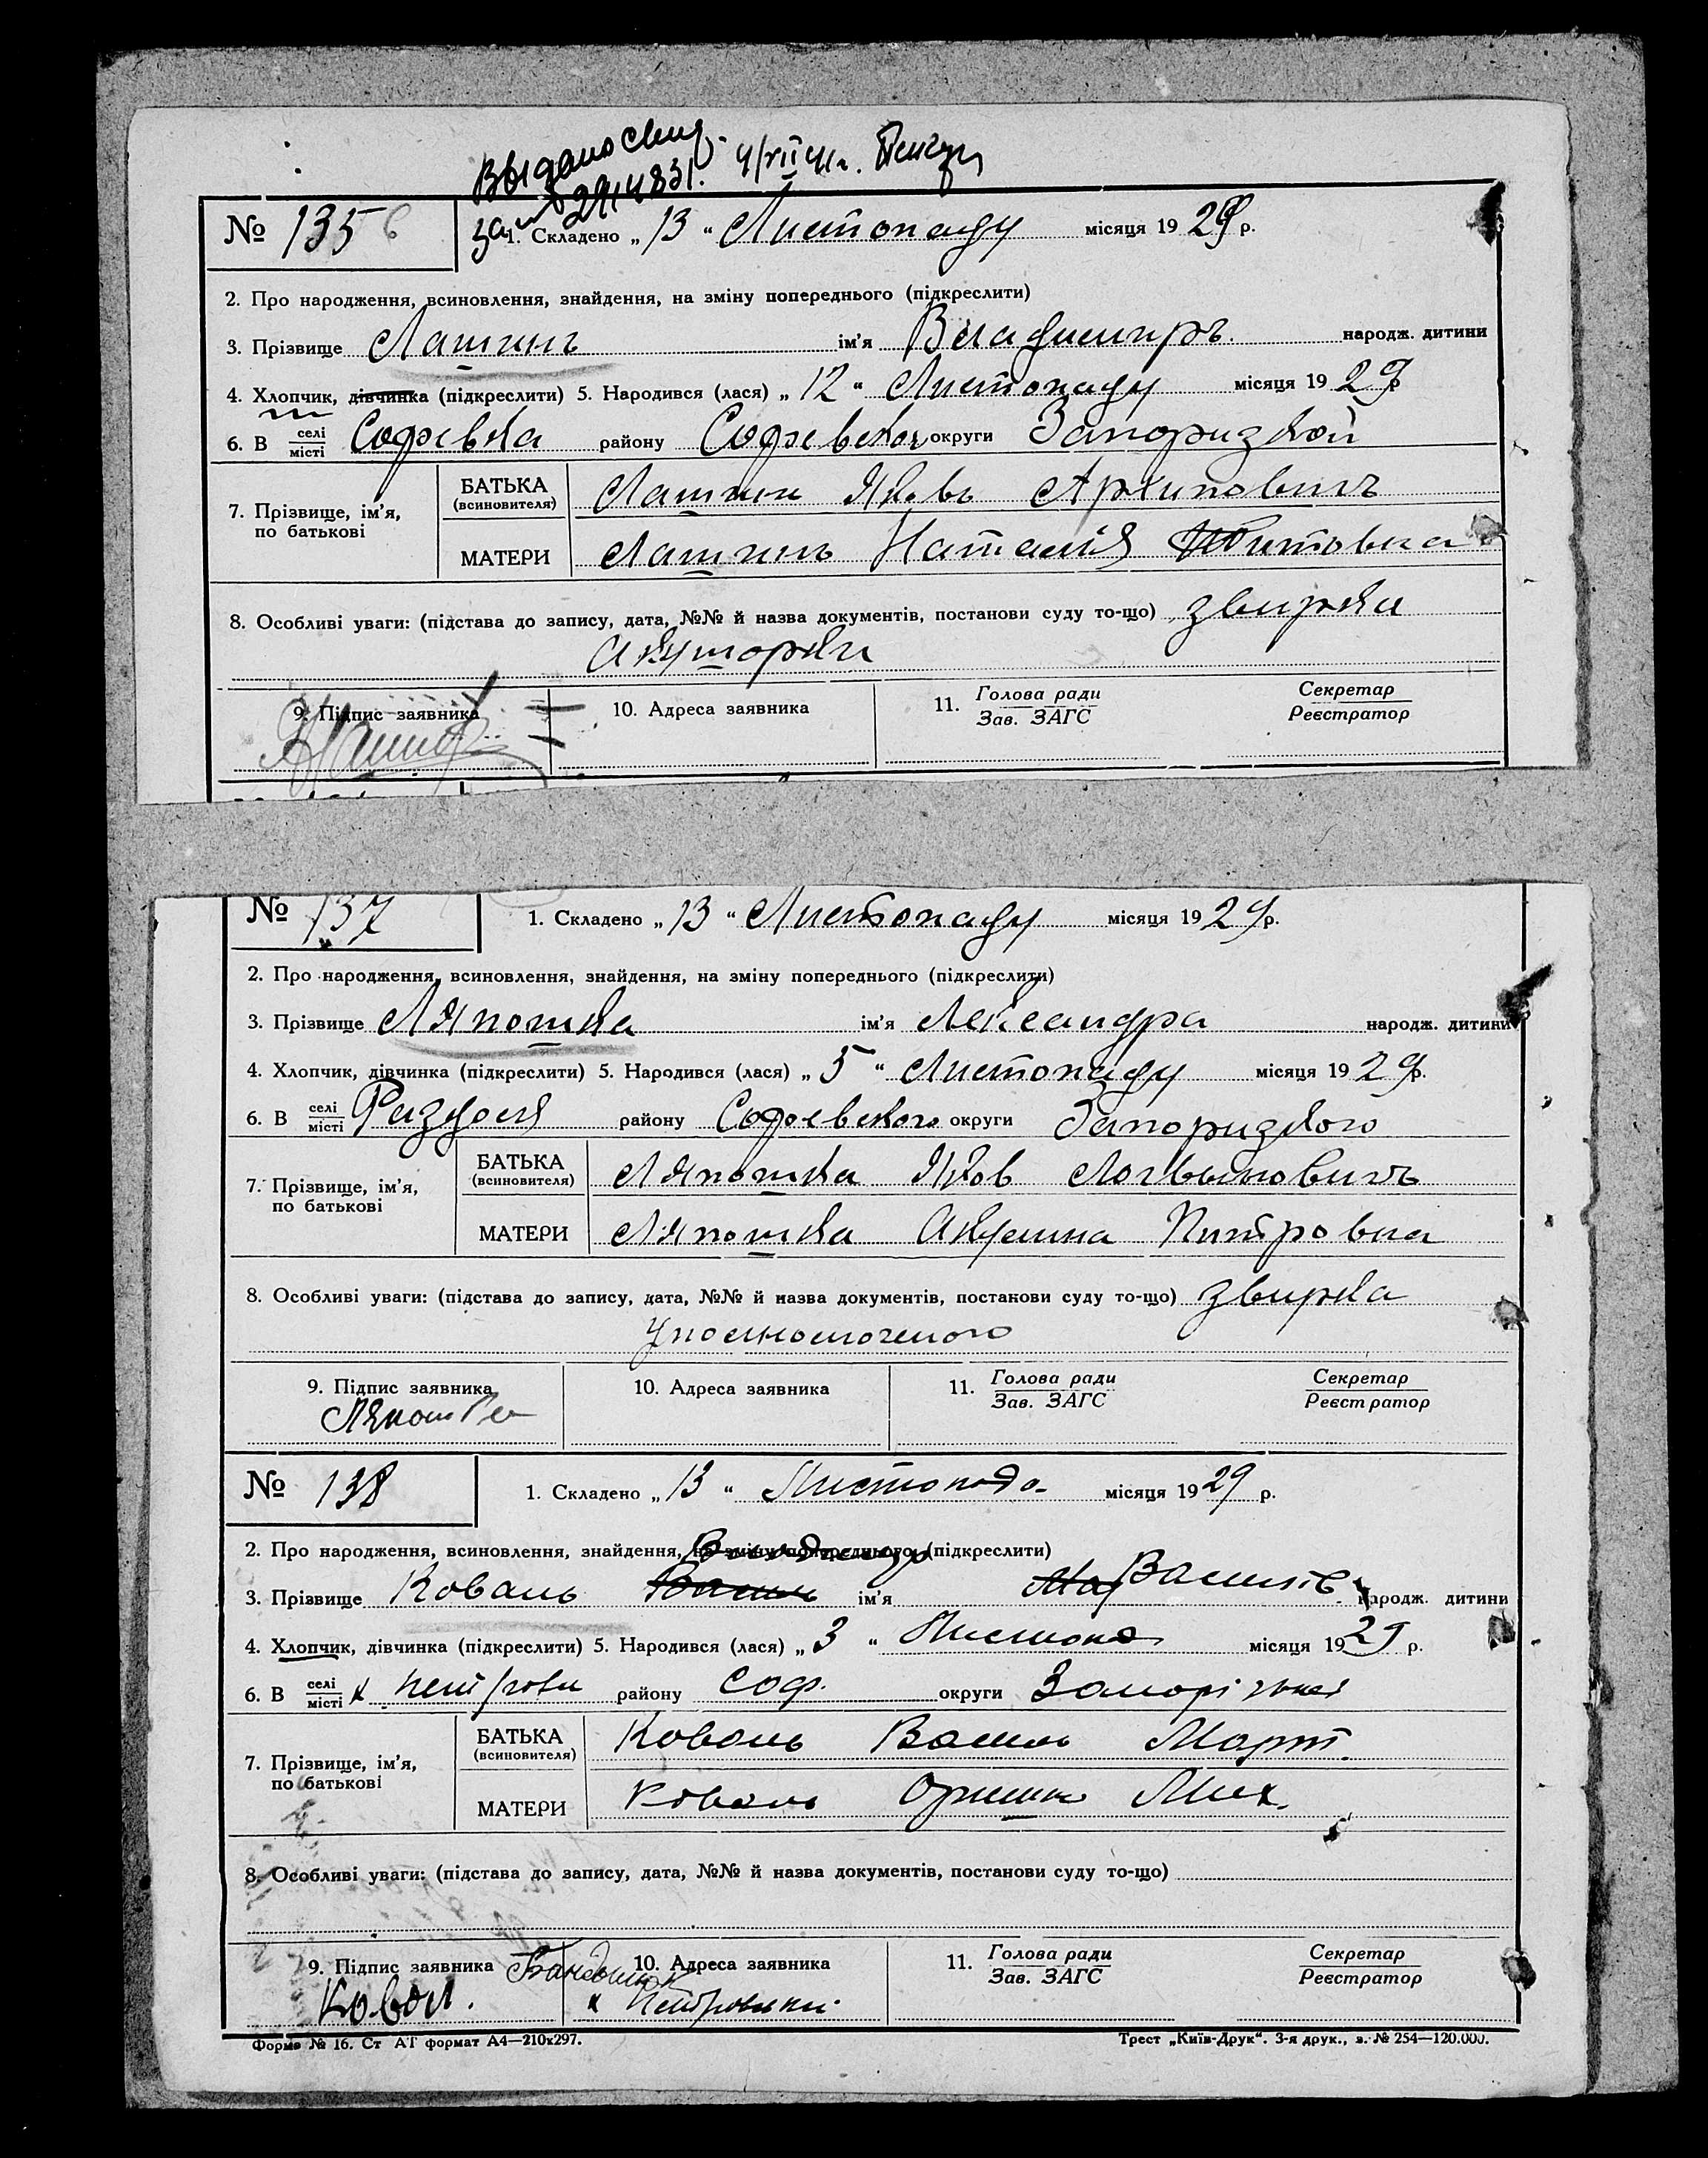 Выдано свид.
за № 2914831. 4/VII 41 г.
№ 135 6
1. Складено „ 13 “ Листопаду місяця 19 29 р.
2. Про народження, всиновлення, знайдення, на зміну попереднього (підкреслити)
3. Прізвище Лашинъ ім'я Владимиръ народж. дитини
4. Хлопчик, дівчинка (підкреслити) 5. Народився (лася) „ 12 “ Листопаду місяця 19 29 р
6. В селі місті Софиевка району Софиевскої округи Запоризкой
7. Прізвище, ім'я, по батькові
БАТЬКА (всиновителя) Лашин Яковъ Архиповичъ
МАТЕРИ Лашинъ Наталія Титовна
8. Особливі уваги: (підстава до запису, дата, №№ й назва документів, постанови суду то-що) звиржки
акушорки
9. Підпис заявника 10. Адреса заявника 11. Голова ради Зав. ЗАГС Секретар Реєстратор
№ 137
1. Складено „ 13 “ Листопаду місяця 19 29 р.
2. Про народження, всиновлення, знайдення, на зміну попереднього (підкреслити)
3. Прізвище Ляпошка ім'я Александра народж. дитини
4. Хлопчик, дівчинка (підкреслити) 5. Народився (лася) „ 5 “ Листопаду місяця 19 29 р.
6. В селі місті Риздоля району Софиевского округи Запоризкого
7. Прізвище, ім'я, по батькові
БАТЬКА (всиновителя) Ляпошка Яков Логвыновичъ
МАТЕРИ Ляпошка Акулина Питровна
8. Особливі уваги: (підстава до запису, дата, №№ й назва документів, постанови суду то-що) звиржка
уполномоченого
9. Підпис заявника 10. Адреса заявника 11. Голова ради Зав. ЗАГС Секретар Реєстратор
Ляпошка
№ 138
1. Складено „ 13 “ Листопада місяця 19 29 р.
2. Про народження, всиновлення, знайдення, на зміну попереднього (підкреслити)
3. Прізвище Коваль ім'я Василів народж. дитини
4. Хлопчик, дівчинка (підкреслити) 5. Народився (лася) „ 3 “ Листопа місяця 19 29 р.
6. В селі місті х. Петровки району Соф. округи Запорізької
7. Прізвище, ім'я, по батькові
БАТЬКА (всиновителя) Коваль Василь Март.
МАТЕРИ Коваль Оришка Мих.
8. Особливі уваги: (підстава до запису, дата, №№ й назва документів, постанови суду то-що)
9. Підпис заявника 10. Адреса заявника 11. Голова ради Зав. ЗАГС Секретар Реєстратор
Ковал. х Петровки
Форма № 16. Ст АТ формат А4—210х297. Трест „Київ-Друк“. 3-я друк., з. № 254—120.000.